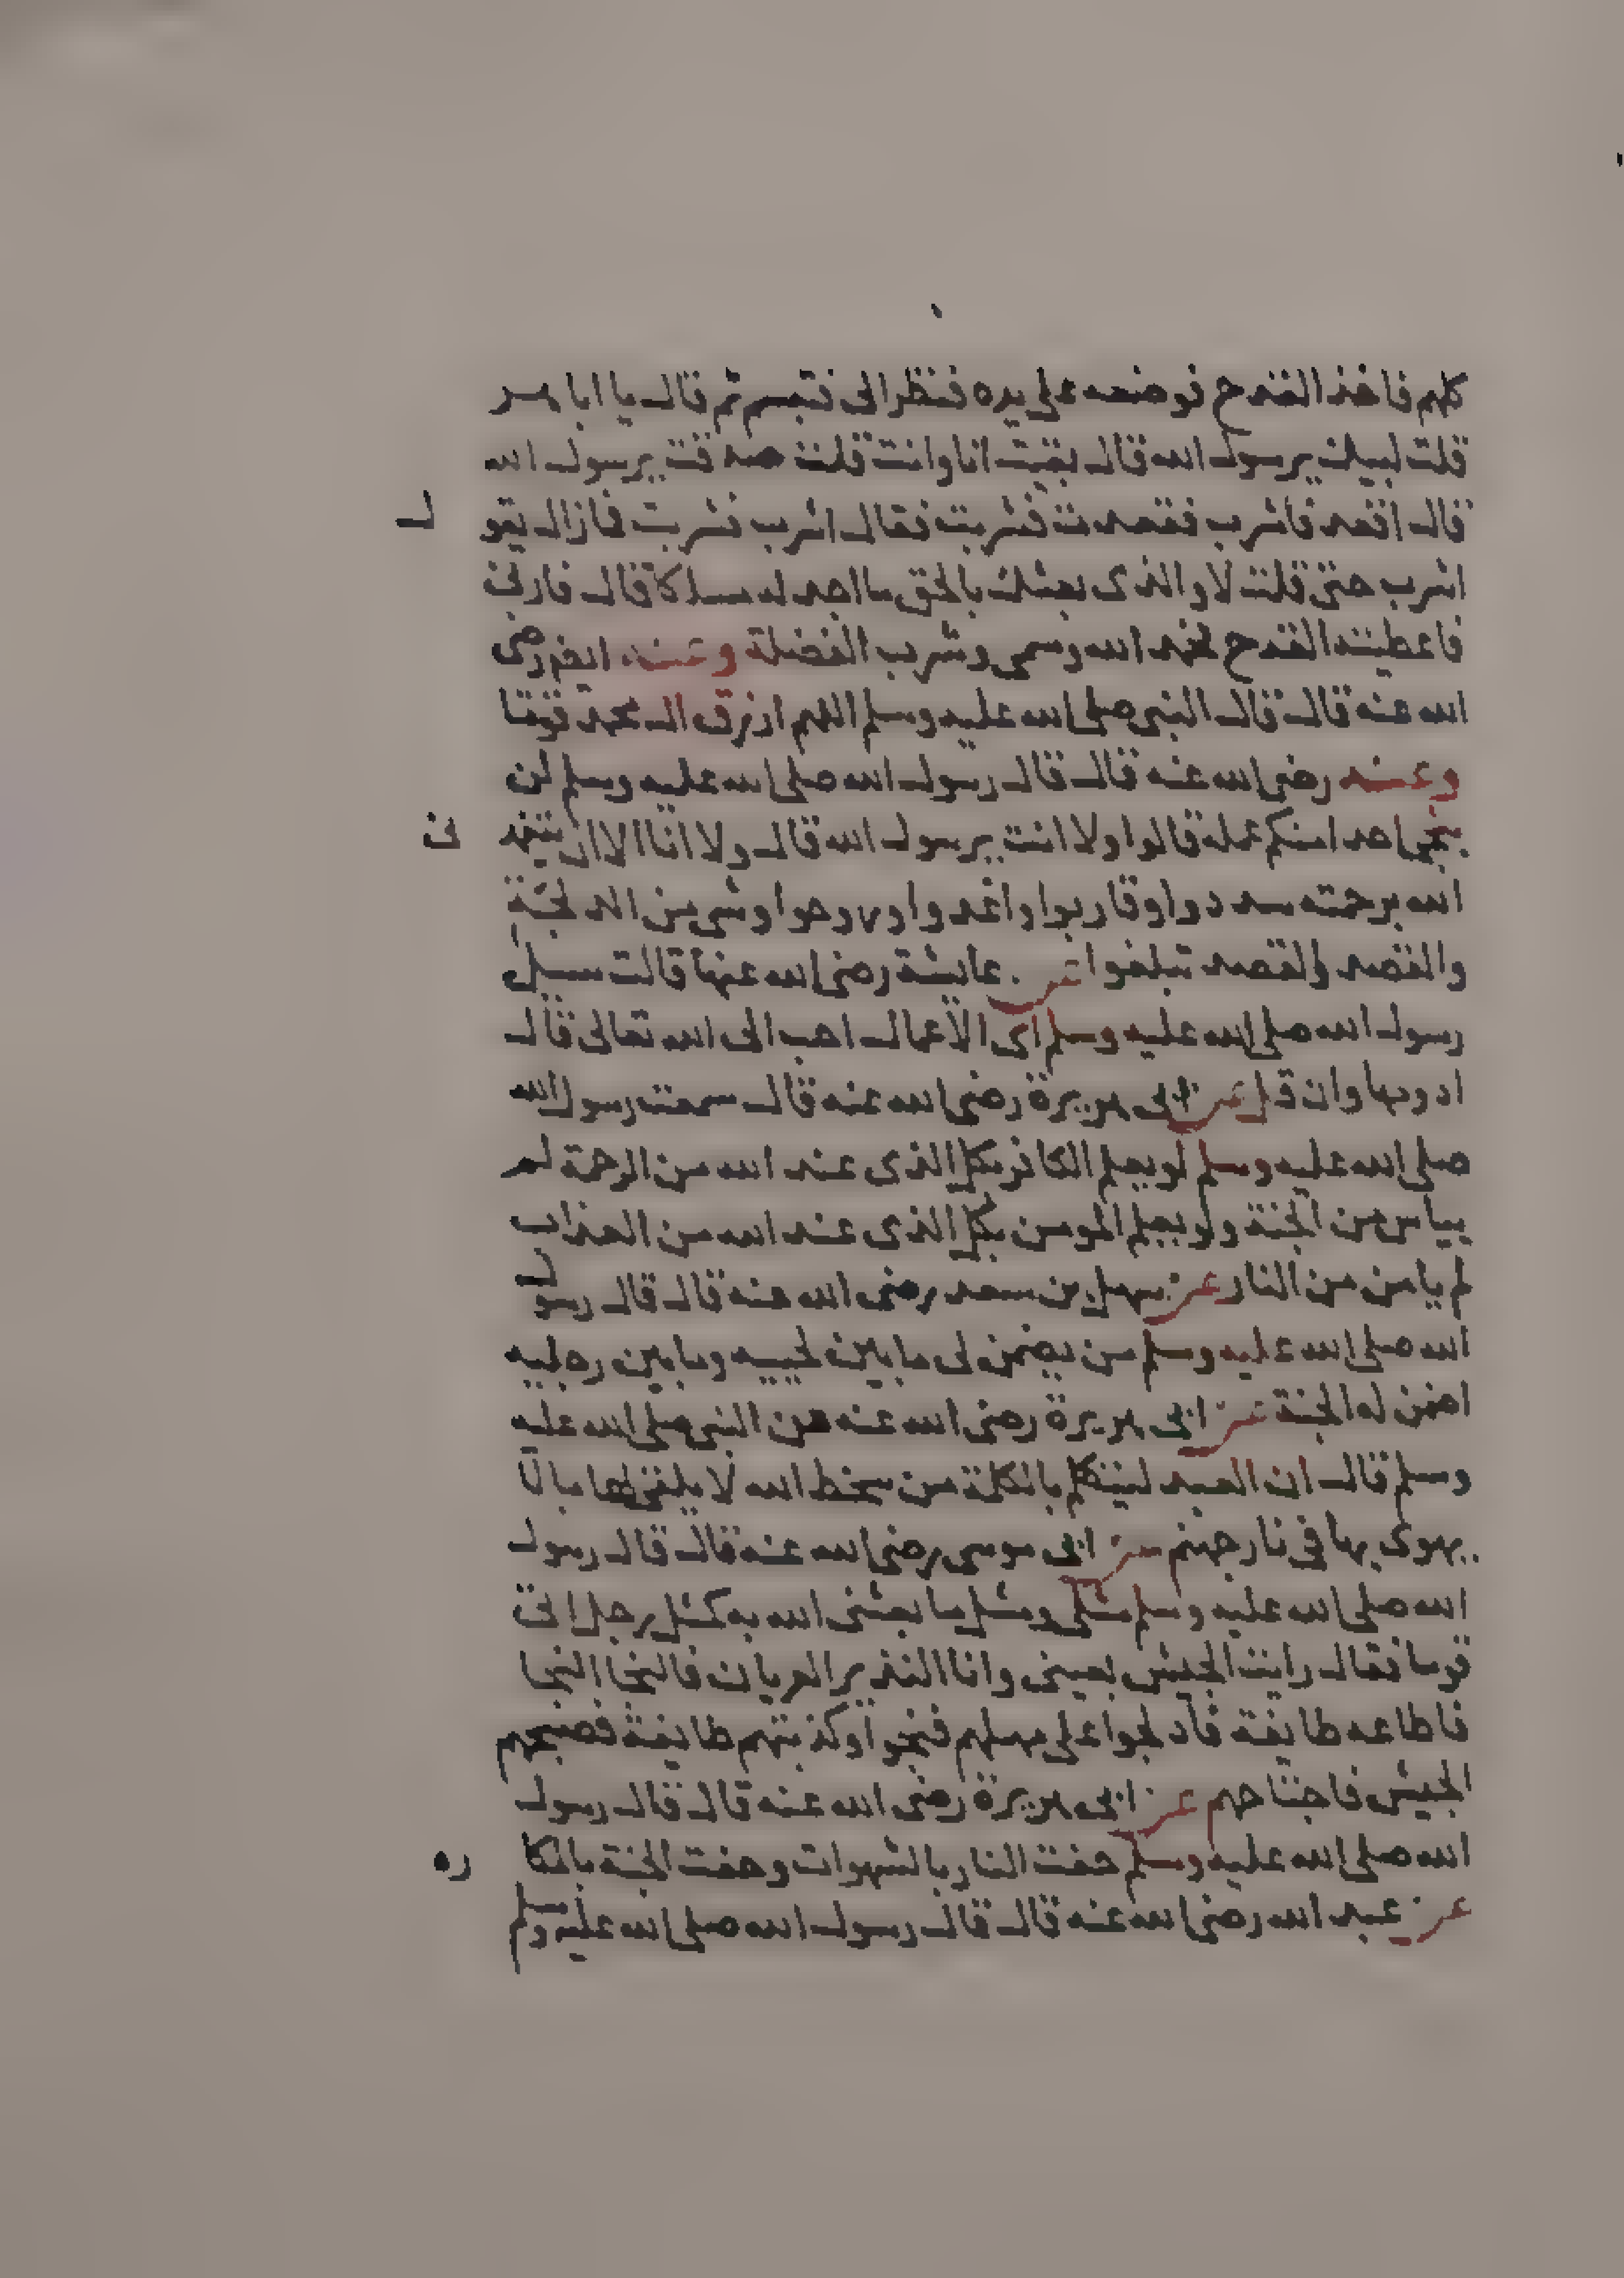 كلهم فاخذ القدح فوضعه على يده فنظر الى فتبسم ثم قال يا ابا هر
قلت لبيك يرسول الله قال بقيت انا وانت قلت صدقت يرسول الله
قال اقعد فاشرب فقعدت فشربت فقال اشرب فشربت فمازال يقو
ل
اشرب حتى قلت لا والذى بعثك بالحق ما اجد له مسلكا قال فارنى
فاعطيته القدح فحمد الله وسمى وشرب الفضلة وعنه ايضا رضى
الله عنه قال قال النبى صلى الله عليه وسلم اللهم ارزق ال محمد قوتا
وعنه رضى الله عنه قال قال رسول الله صلى الله عليه وسلم لن
ينجى احد امنكم عمله قالوا ولا انت يرسول الله قال ولا انا الا ان يتغمد
نى
الله برحمته سددوا وقاربوا واغدوا وروحوا وشى من الدلجة
والقصد والقصد تبلغوا عن عائشة رضى الله عنها قالت سئل
رسول الله صلى الله عليه وسلم اى الاعمال احب الى الله تعالى قال
ادومها وان قل عن ابى هريرة رضى الله عنه قال سمعت رسول الله
صلى الله عليه وسلم لو يعلم الكافر بكل الذى عند الله من الرحمة لم
ييأس من الجنة ولو يعلم المومن بكل الذى عند الله من العذاب
لم يامن من النار عن سهل بن سعد رضى الله عنه قال قال رسول
الله صلى الله عليه وسلم من يضمن لى ما بين لحييه وما بين رجليه
اضمن له الجنة عن ابى هريرة رضى الله عنه عن النبى صلى الله عليه
وسلم قال ان العبد ليتكلم بالكلمة من سخط الله لا يلقى لها بالا
يهوى بها فى نار جهنم عن ابى موسى رضى الله عنه قال قال رسول
الله صلى الله عليه وسلم مثلى ومثل ما بعثنى الله به كمثل رجل اتى
قوما فقال رايت الجيش بعينى وانا النذير العريان فالنجا النجا
فاطاعه طايفة فادلجوا على مهلهم فنجوا وكذبتهم طايفة فصبحهم
الجيش فاجتاحهم عن ابى هريرة رضى الله عنه قال قال رسول
الله صلى الله عليه وسلم حفت النار بالشهوات وحفت الجنة بالمكا
ره
عن عبد الله رضى الله عنه قال قال رسول الله صلى الله عليه وسلم